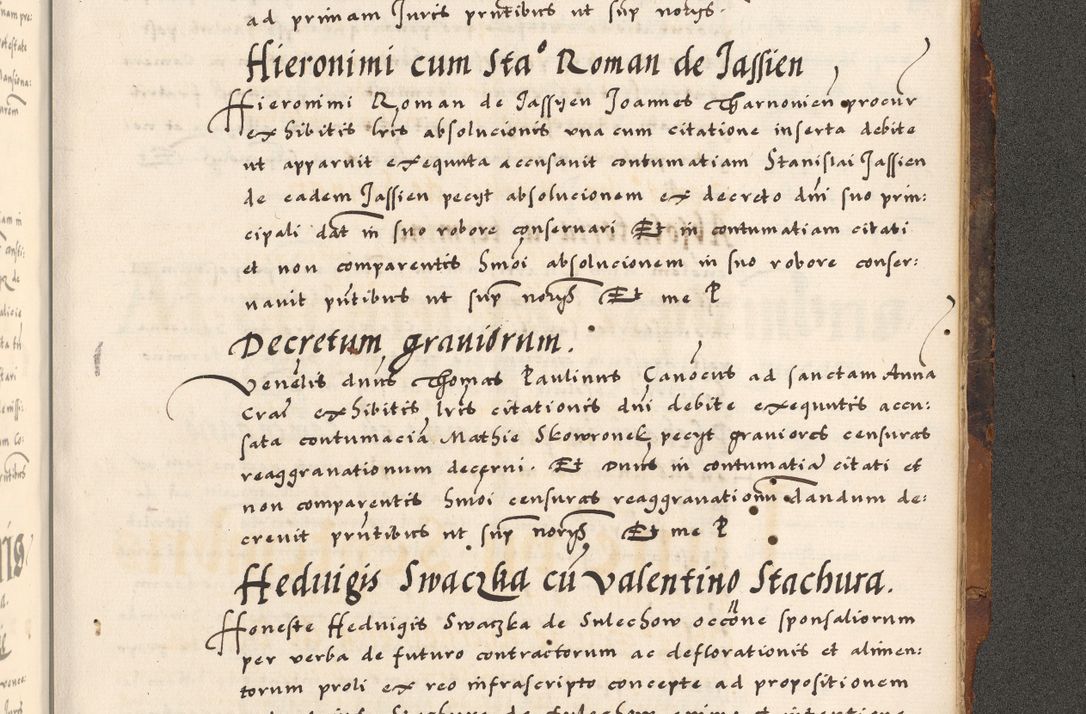 ad primam Juris pntibus ut sup̃ notys.
Hieronimi cum Stão Roman de Jassien
Hieronimi Roman de Jassyen Joannes Tharnonien procur
exhibitis lris absolucionis una cum citatione inserta debite
ut apparuit exequuta accusavit contumatiam Stanislai Jassien
de eadem Jassien pecyt absolucionem ex decreto dni suo prin:
cipali dat in suo robore conservari Et in contumatiam citati
et non comparentis hmoi absolucionem in suo robore conser:
vavit pntibus ut sup̃ notys Et me P
Decretum graviorum.
Venelis dnus Thomas Paulinus Canocus ad sanctam Anna
Crac exhibitis lris citationis dni debite exequutis accu:
sata contumacia Mathie Skowronek pecyt graviores censuras
reaggravationum decerni. Et Dnus in contumatia citati et
non comparentis hmoi censuras reaggravationu dandum de:
crevit pntibus ut sup̃ notys Et me P
Hedvigis Swaczka cu Valentino Stachura.
Honeste Hedvigis Swaczka de Sulechow occone sponsaliorum
per verba de futuro contractorum ac deflorationis et alimen:
torum proli ex reo infrascripto concepte ad propositionem
Stachura de Sulechow